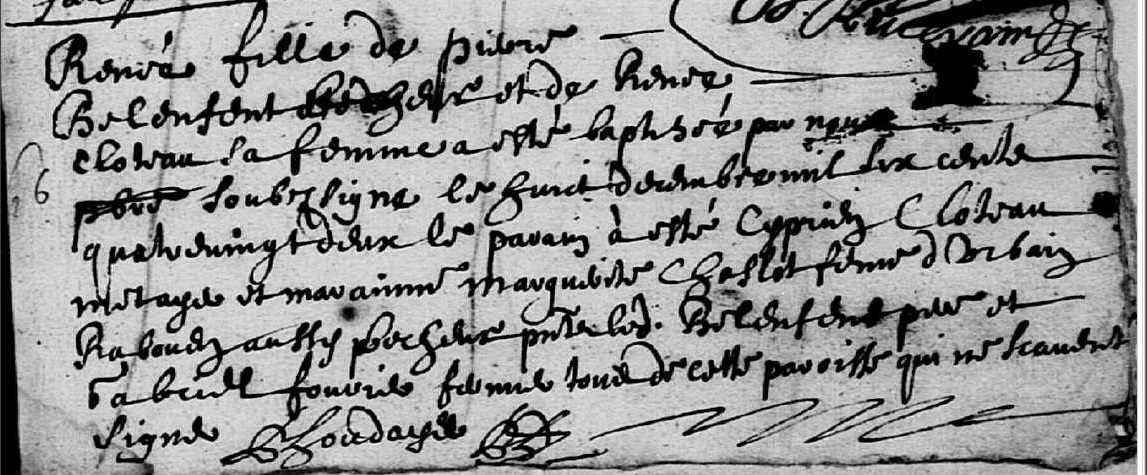 Renée fille de pierre
Belenfent pecheur et de Renee
Cloteau sa femme a esté baptisée par nous
pbre soubzsigne le huict decembre mil six cente
quatrevingt deux le parain à esté Cyprien Cloteau
metayer et marainne marguerite Chaslot femme d Urbain
Rabouin aussy pecheur pnte led. Belenfent pere et
Gabriel fourier fermier tous de cette paroisse qui ne scavent
signer